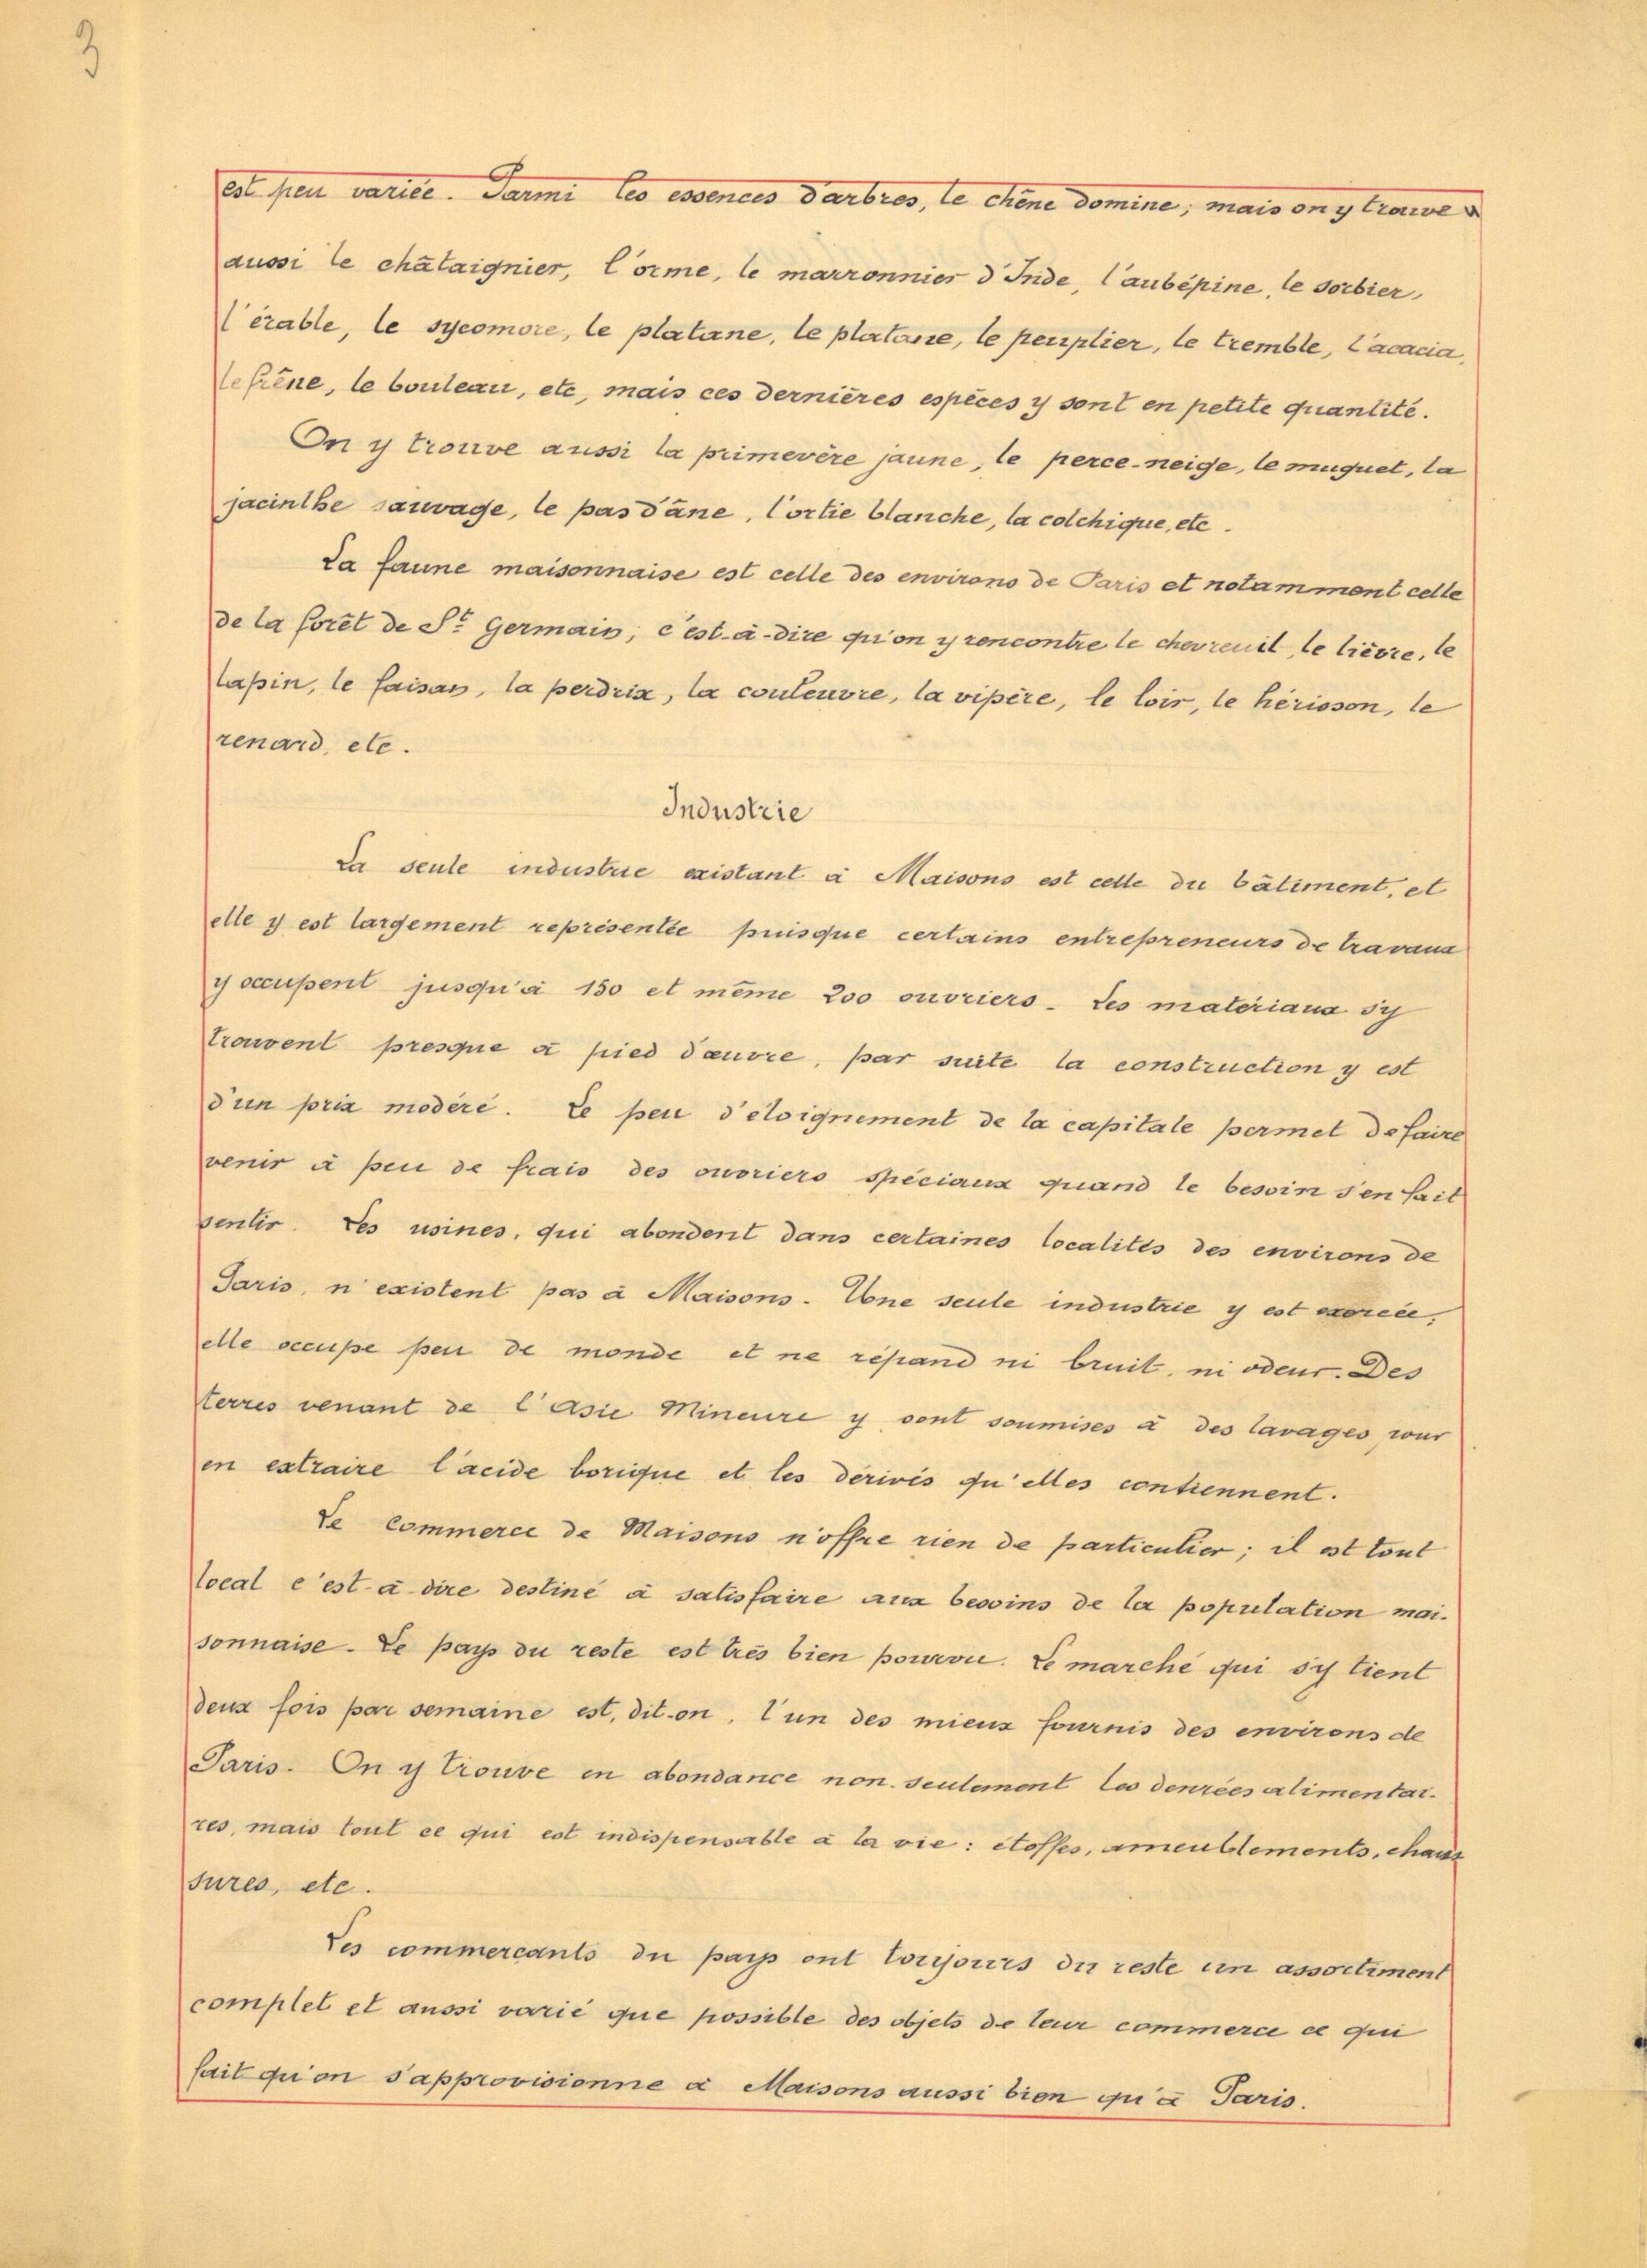 3
est peu variée. Parmi les essences d'arbres, le chêne domine; mais on y trouve
aussi le châtaignier, l'orme, le marronnier d'Inde, l'aubépine, le sorbier,
l'érable, le sycomore, le platane, le platane, le peuplier, le tremble, l'acacia,
le frêne, le bouleau, etc, mais ces dernières espèces y sont en petite quantité.
On y trouve aussi la primevère jaune, le perce-neige, le muguet, la
jacinthe sauvage, le pas d'âne, l'ortie blanche, la colchique, etc.
La faune maisonnaise est celle des environs de Paris et notamment celle
de la forêt de St Germain, c'est-à-dire qu'on y rencontre le chevreuil, le lièvre, le
lapin, le faisan, la perdrix, la couleuvre, la vipère, le loir, le hérisson, le
renard, etc.
Industrie
La seule industrie existant à Maisons est celle du bâtiment, et
elle y est largement représentée puisque certains entrepreneurs de travaux
y occupent jusqu'à 150 et même 200 ouvriers. Les matériaux s'y
trouvent presque à pied d'œuvre, par suite la construction y est
d'un prix modéré. Le peu d'éloignement de la capitale permet de faire
venir à peu de frais des ouvriers spéciaux quand le besoin s'en fait
sentir. Les usines, qui abondent dans certaines localités des environs de
Paris, n'existent pas à Maisons. Une seule industrie y est exercée,
elle occupe peu de monde et ne répand ni bruit, ni odeur. Des
terres venant de l'Asie Mineure y sont soumises à des lavages pour
en extraire l'acide borique et les dérivés qu'elles contiennent.
Le commerce de Maisons n'offre rien de particulier; il est tout
local c'est-à-dire destiné à satisfaire aux besoins de la population mai-
sonnaise. Le pays du reste est très bien pourvu. Le marché qui s'y tient
deux fois par semaine est, dit-on, l'un des mieux fournis des environs de
Paris. On y trouve en abondance non-seulement les denrées alimentai-
res, mais tout ce qui est indispensable à la vie: étoffes, ameublements, chaus
sures, etc.
Les commerçants du pays ont toujours du reste un assortiment
complet et aussi varié que possible des objets de leur commerce ce qui
fait qu'on s'approvisionne à Maisons aussi bien qu'à Paris.